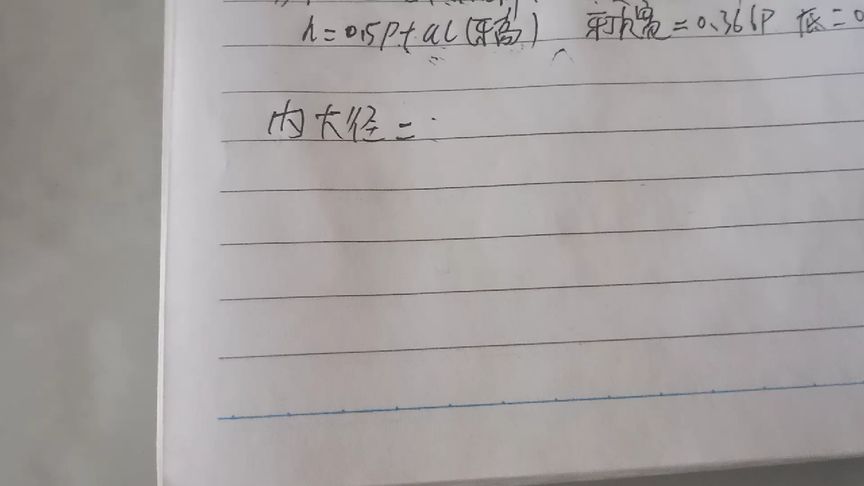 h=0.5P+ac(牙高) 牙顶宽=0.366P 底=0
内大径=